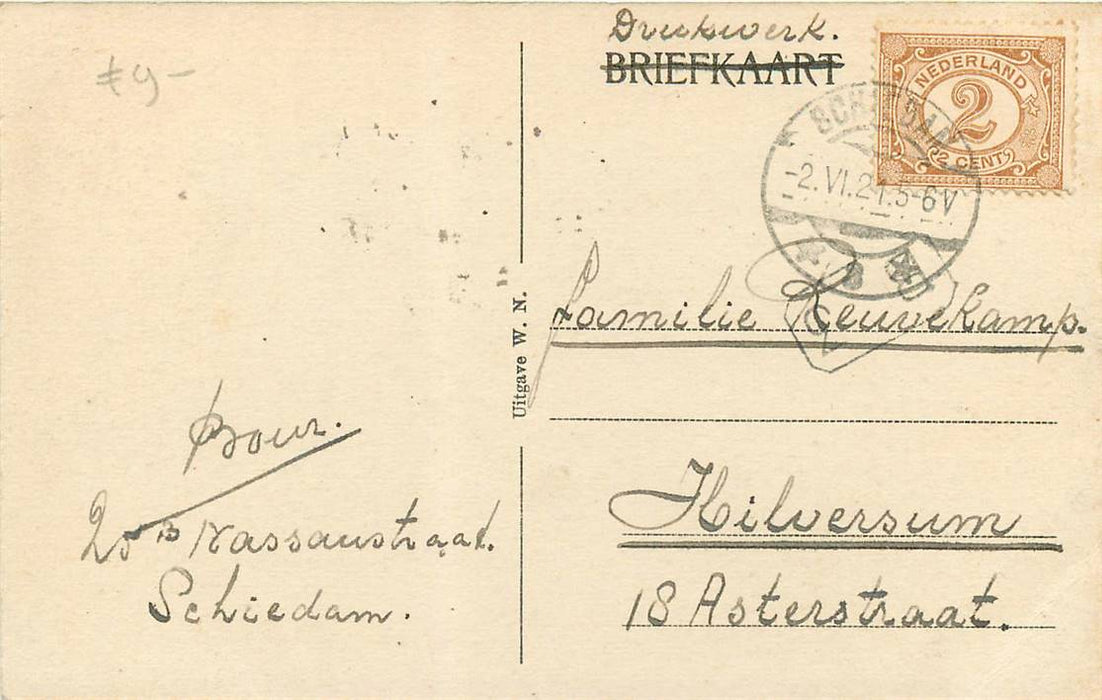 Drukwerk.
BRIEFKAART
NEDERLAND
2
2 CENT
SCHIEDAM
-2.VI.21.5-6V
Familie Reuvekamp.
Hilversum
18 Asterstraat.
Uitgave W. N.
Bour.
25 B Nassaustraat.
Schiedam.